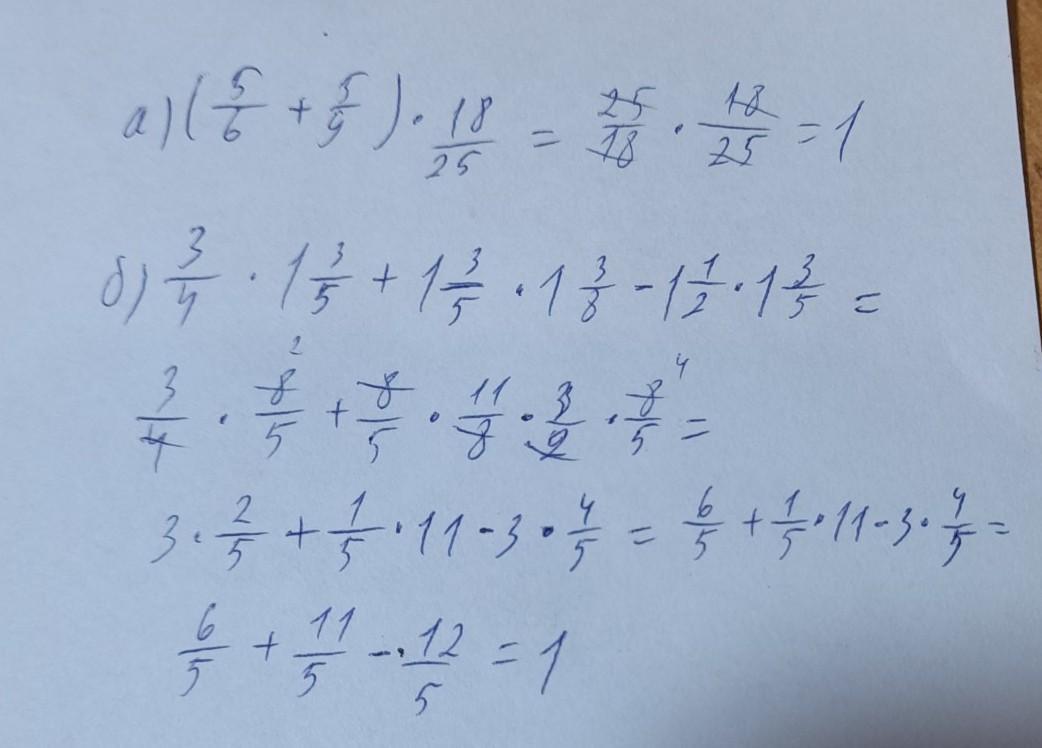 а) (5/6 + 5/9) · 18/25 = 25/18 · 18/25 = 1
б) 3/4 · 1 3/5 + 1 3/5 · 1 3/8 - 1 1/2 · 1 3/5 =
3/4 · 8/5 2 + 8/5 · 11/8 · 3/2 · 8/5 4 =
3 · 2/5 + 1/5 · 11 - 3 · 4/5 = 6/5 + 1/5 · 11 - 3 · 4/5 =
6/5 + 11/5 - 12/5 = 1